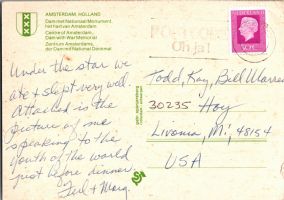 AMSTERDAM, HOLLAND
Dam met Nationaal Monument,
het hart van Amsterdam
Centre of Amsterdam,
Dam with War Memorial
Zentrum Amsterdams,
der Dam mit National Denkmal
Under the star we
are & slept very well.
Attached is the
picture of me
speaking to the
youth of the world
just before dinner.
Ted + Marg.
Oh ja!
NEDERLAND
Todd, Kay, Bill Warren
30235 Hoy
Livonia, Mi, 48154
USA